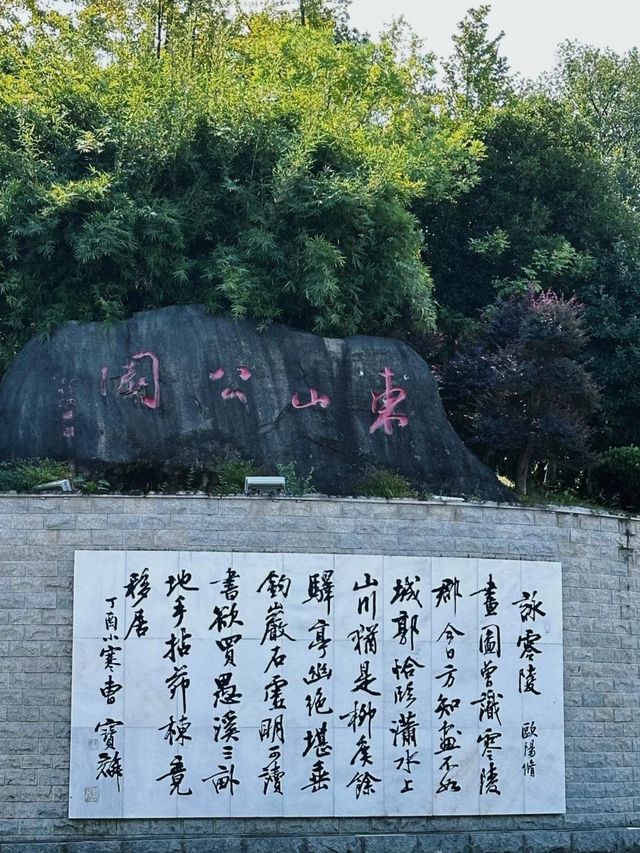 東山公園
詠零陵 歐陽脩
畫圖曾識零陵
郡今日方知畫不如
城郭恰臨瀟水上
山川猶是柳侯餘
驛亭幽絕堪垂
釣巖石虛明可讀
書欲買愚溪三畝
地手拈茆棟竟
移居
丁酉小寒曹寶麟